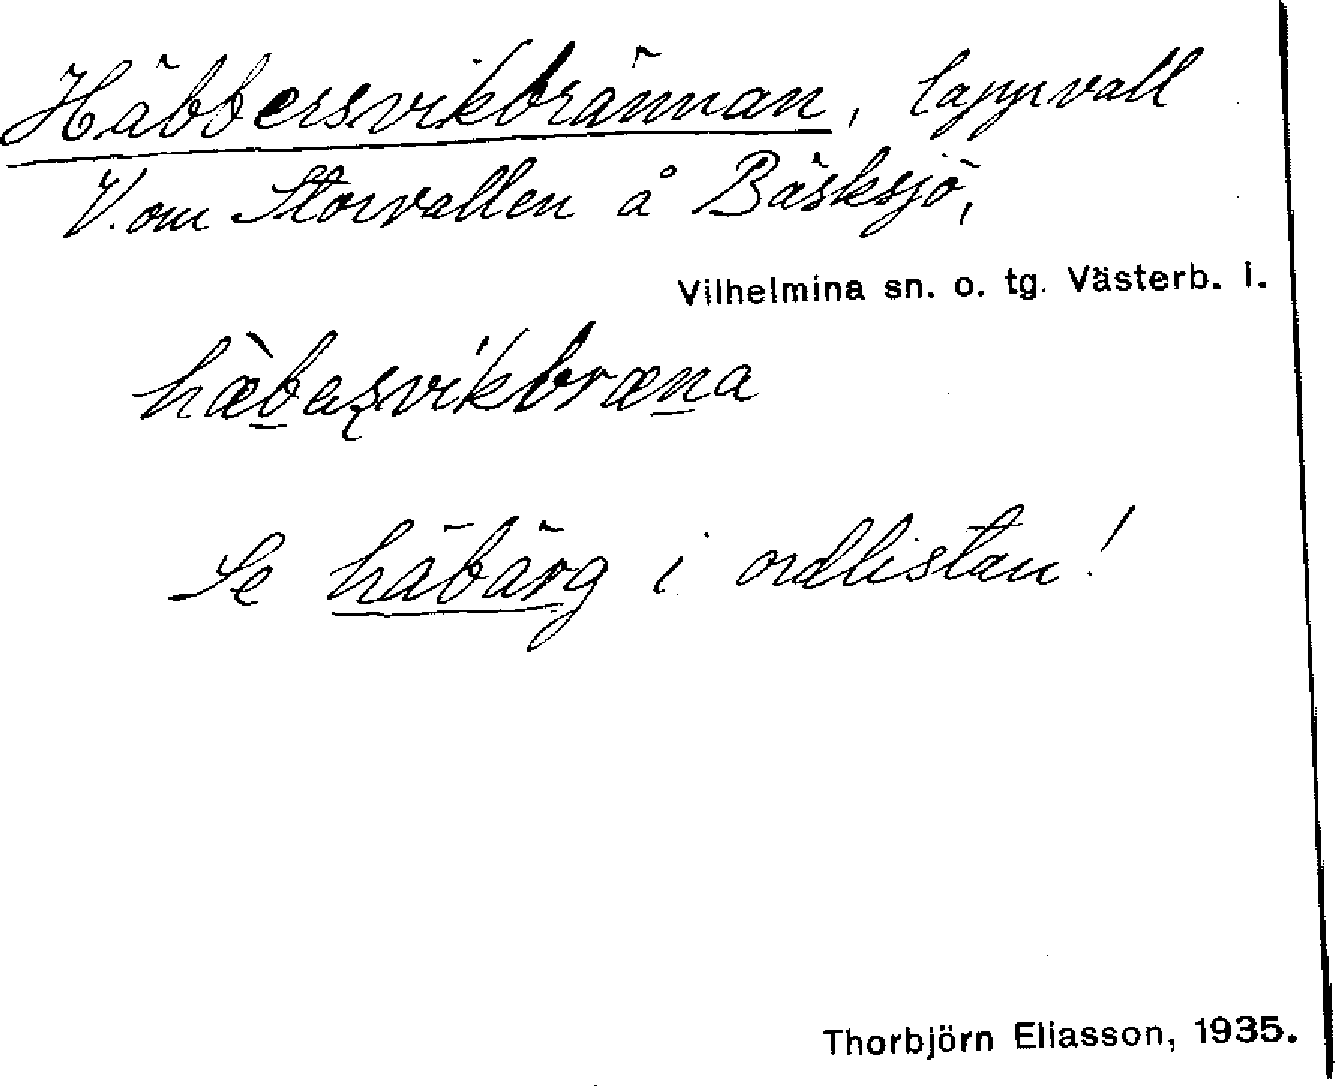 Häbbersvikbrännan, lappvall
V. om Storvallen å Bäsksjö,
Vilhelmina sn. o. tg. Västerb. l.
hæ̀b̲aʂvikbræn̲a
Se häbärg i ordlistan!
Thorbjörn Eliasson, 1935.